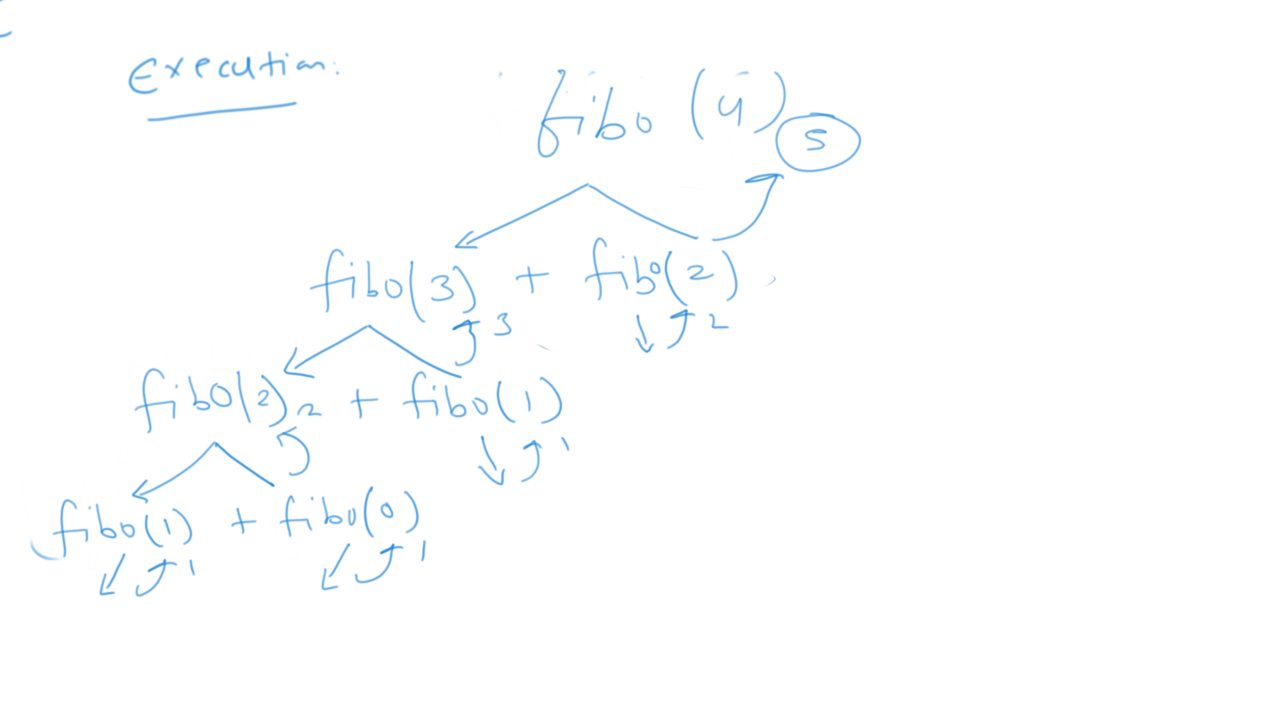 Execution:
fibo (4) 5
fibo(3) + fibo(2)
3 2
fibo(2) 2 + fibo(1)
1
fibo(1) + fibo(0)
1 1